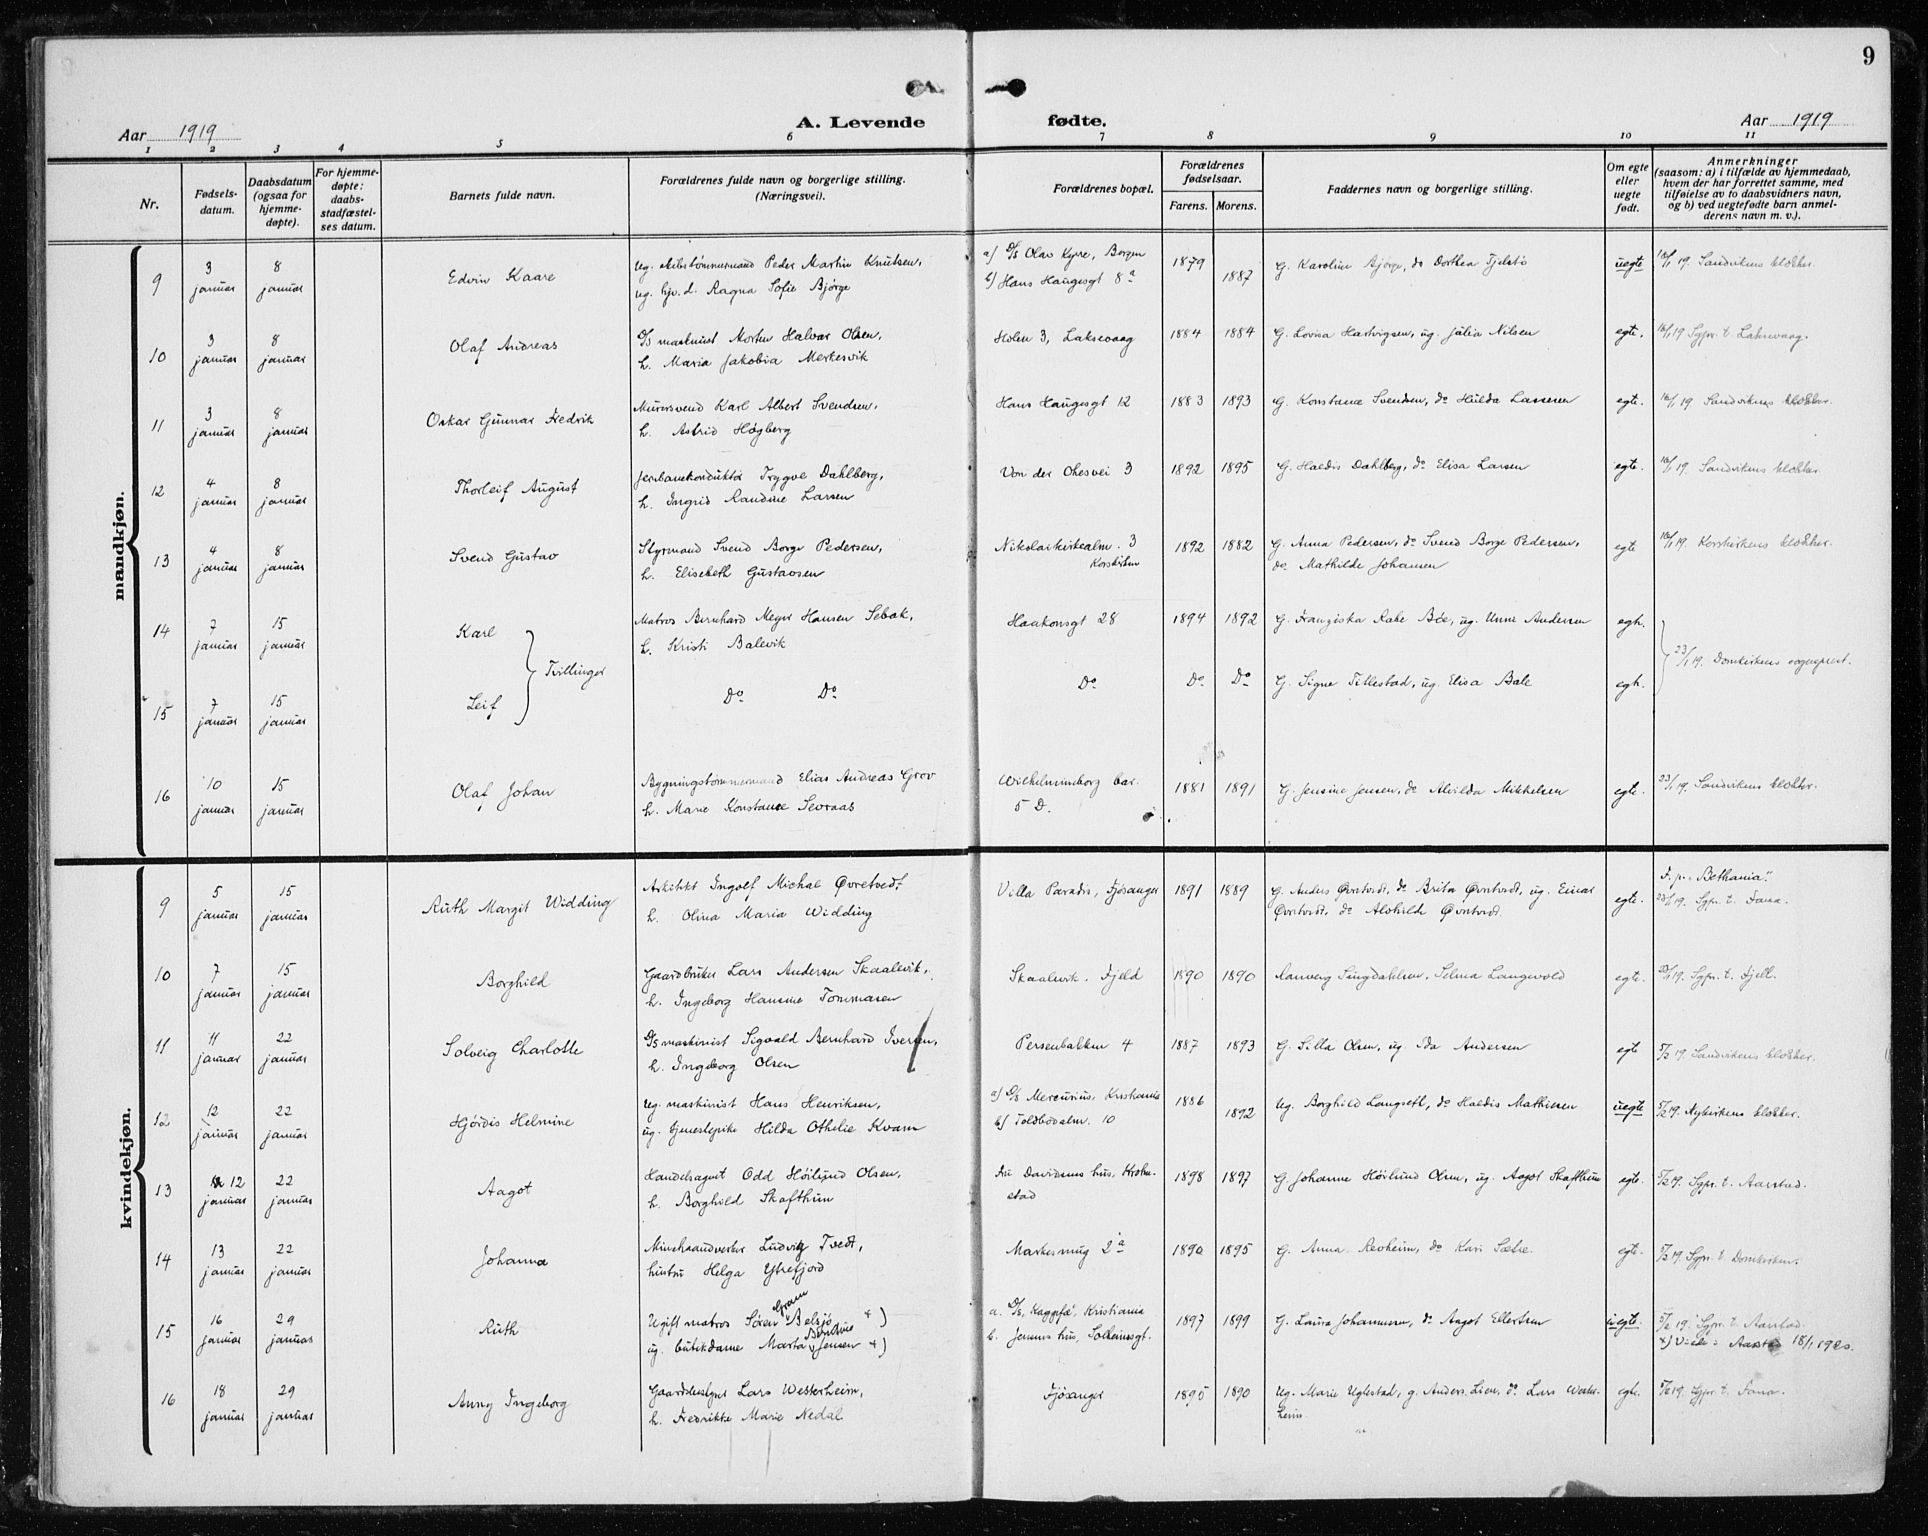 9
Aar 1919
A. Levende fødte.
Aar 1919
1 2 3 4 5 6 7 8 9 10 11
Nr.
Fødsels-
datum.
Daabsdatum
(ogsaa for
hjemme-
døpte).
For hjemme-
døpte:
daabs-
stadfæstel-
ses datum.
Barnets fulde navn.
Forældrenes fulde navn og borgerlige stilling.
(Næringsvei).
Forældrenes bopæl.
Forældrenes
fødselsaar.
Farens. Morens.
Faddernes navn og borgerlige stilling.
Om egte
eller
uegte
født.
Anmerkninger
(saasom: a) i tilfælde av hjemmedaab,
hvem der har forrettet samme, med
tilføielse av to daabsvidners navn,
og b) ved uegtefødte barn anmel-
derens navn m. v.).
mandkjøn.
9 3 januar 8 januar Edvin Kaare
Ug. skibstømmermand Peder Martin Knutsen,
ug. hjv. d. Ragna Sofie Bjørge
a) D/S Olav Kyrre, Bergen
b) Hans Haugesgt 8 a
1879 1887
G. Karoline Bjørge, do Dorthea Tjelstø
uegte
16/1 19. Sandvikens klokker.
10 3 januar 8 januar Olaf Andreas
D/S maskinist Morten Halvar Olsen,
h. Maria Jakobia Merkesvik
Holen 3, Laksevaag
1884 1884
G. Lovisa Hartvigsen, ug. Julia Nilsen
egte.
16/1 19 Sgpr. t. Laksevaag.
11 3 januar 8 januar Oskar Gunnar Fredrik
Murersvend Karl Albert Svendsen,
h. Astrid Høgberg
Hans Haugesgt 12
1883 1893
G. Konstance Svendsen, do Hulda Lassesen
egte.
16/1 19. Sandvikens klokker.
12 4 januar 8 januar Thorleif August
Jernbanekonduktør Trygve Dahlberg,
h. Ingrid Randine Larsen
Von der Ohesvei 3
1892 1895
G. Haldis Dahlberg, do Elisa Larsen
egte.
16/1 19. Sandvikens klokker.
13 4 januar 8 januar Svend Gustav
Styrmand Svend Borge Pedersen,
h. Elisebeth Gustavsen
Nikolaikirkealm. 3
Korskirken
1892 1882
G. Anna Pedersen, do Svend Borge Pedersen,
do Mathilde Johansen
egte
16/1 19. Korskirkens klokker.
14 7 januar 15 januar Karl
Tvillinger
Matros Bernhard Meyer Hansen Sebak,
h. Kristi Balevik
Haakonsgt 28
1894 1892
G. Franziska Rabe Bøe, ug. Unni Andersen
egte.
23/1 19. Domkirkens sogneprest.
15 7 januar 15 januar Leif
Do Do
Do
Do Do
G. Signe Tillestad, ug. Elisa Bale
egte.
16 10 januar 15 januar Olaf Johan
Bygningstømmermand Elias Andreas Grov
h. Marie Konstance Sevraas
Wilhelmineborg bar.
5 D.
1881 1891
G. Jensine Jensen, do Alvilda Mikkelsen
egte.
23/1 19. Sandvikens klokker.
kvindekjøn.
9 5 januar 15 januar Ruth Margit Widding
Arkitekt Ingolf Michal Øvretvedt
h. Olina Maria Widding
Villa Paradis, Fjøsanger
1891 1889
G. Anders Øvretvedt, do Brita Øvretvedt, ug. Einar
Øvretvedt, do Alvhilde Øvretvedt.
egte.
F. p. "Bethania".
23/1 19. Sgpr. t. Fana.
10 7 januar 15 januar Borghild
Gaardbruker Lars Andersen Skaalevik,
h. Ingeborg Hansine Tommasen
Skaalevik, Fjeld
1890 1890
Ranveig Singdahlsen, Selma Langevold
egte.
23/1 19. Sgpr. t. Fjell.
11 11 januar 22 januar Solveig Charlotte
D/S maskinist Sigvald Bernhard Iversen,
h. Ingeborg Olsen
Persenbakken 4
1887 1893
G. Silla Olsen, ug. Ida Andersen
egte
5/2 19. Sandvikens klokker.
12 12 januar 22 januar Hjørdis Helmine
Ug. maskinist Hans Henriksen,
ug. tjenestepike Hilda Othelie Kvam
a) D/S Mercurius, Kristiania
b) Toldbodalm. 10
1886 1892
Ug. Borghild Langsett, do Haldis Mathiesen
uegte
5/2 19. Nykirkens klokker.
13 12 januar 22 januar Aagot
Handelsagent Odd Høilund Olsen,
h. Borghild Skafthun
Davidsens hus, Krohn-
stad
1898 1897
G. Johanne Høilund Olsen, ug. Aagot Skafthun
egte.
5/2 19. Sgpr. t. Aarstad.
14 13 januar 22 januar Johanna
Ludvig Tvedt,
hustru Helga Ytrefjord
Markesmug 2 a
1890 1895
G. Anna Revheim, do Kari Sætre.
egte.
5/2 19 Sgpr. t. Domkirken.
15 16 januar 29 januar Ruth
Ugift matros Søren Gram Belsjø +)
ug. butikdame Marta Berntine Jensen +)
a. D/S, Kaggefæ, Kristiania
b. Jensens hus, Solheimsgt.
1897 1899
G. Laura Johannesen, do Aagot Ellertsen
uegte.
5/2 19. Sgpr. t. Aarstad.
+) Viede i Aarstad 18/1 1920.
16 18 januar 29 januar Anny Ingeborg
Lars Westerheim,
h. Fredrikke Marie Nedal
Fjøsanger
1895 1890
Ug. Marie Uglestad, g. Anders Lien, do Lars Wester-
heim.
egte.
5/2 19. Sgpr. t. Fana.